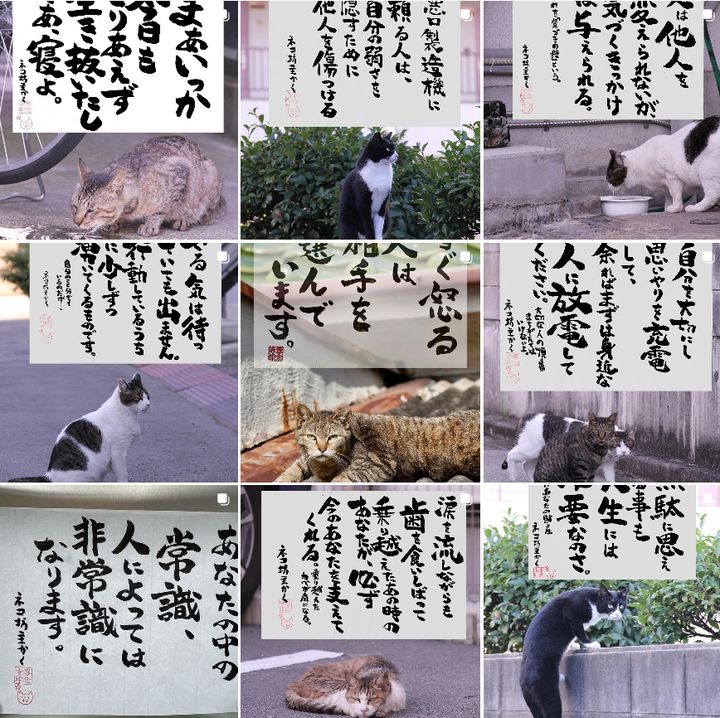 まあいっか
今日も
とりあえず
生き抜いたし
あ、寝よ。
ネコ坊主かく
口製造機に
頼る人は、
自分の弱さを
隠すために
他人を傷つける
ネコ坊主かく
人は他人を
変えられないが
気づくきっかけ
は与えられる。
ネコ坊主かく
る気は待っ
ていても出ません。
行動しているうち
に少しずつ
湧いてくるものです。
ネコ坊主かく
すぐ怒る
人は
相手を
選んで
います。
自分を大切にし
思いやりを充電
して、
余ればまずは身近な
人に放電して
ください。
大切な人の順番
まちがえては
いけないよ
ネコ坊主かく
あなたの中の
常識、
人によっては
非常識に
なります。
ネコ坊主かく
涙を流しながらも
歯を食いしばって
乗り越えたあの時の
あなたが、必ず
今のあなたを支えて
くれる。
ネコ坊主かく
駄に思え
事も
人生には
必要なのさ。
ネコ坊主かく